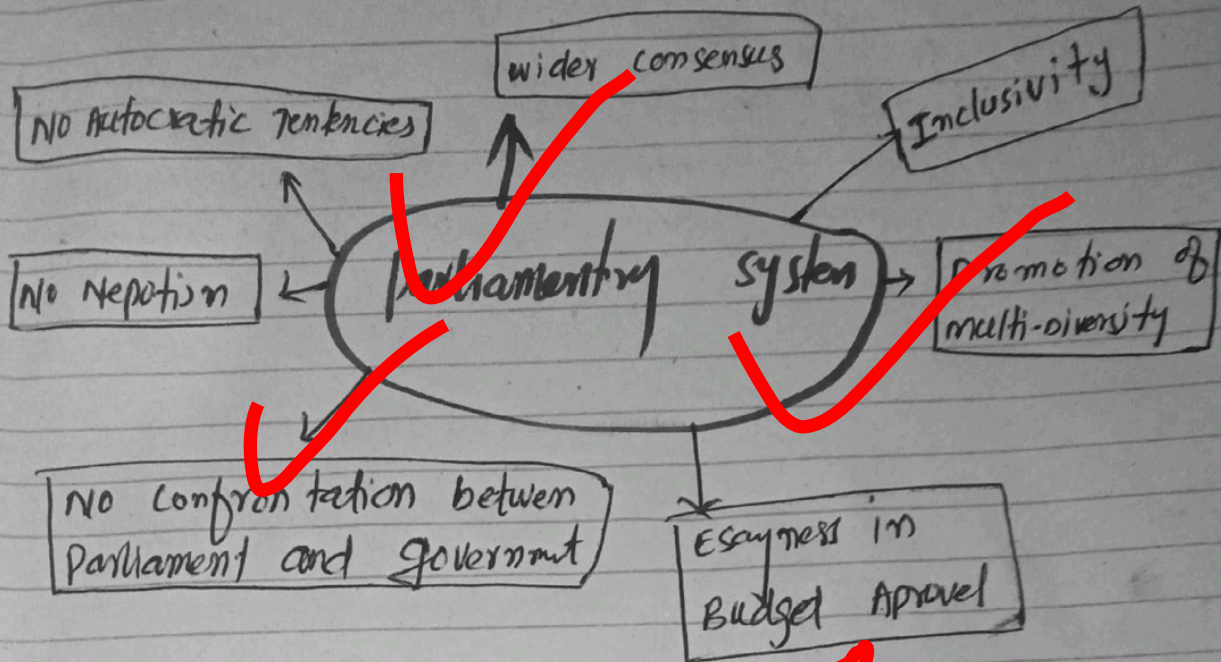 wider consensus
No Autocratic Tentencies
Inclusivity
No Nepotism
Parliamentry system
Promotion of
multi-Diversity
No Confrontation betwen
Parliament and government
Esayness in
Budget Aprovel